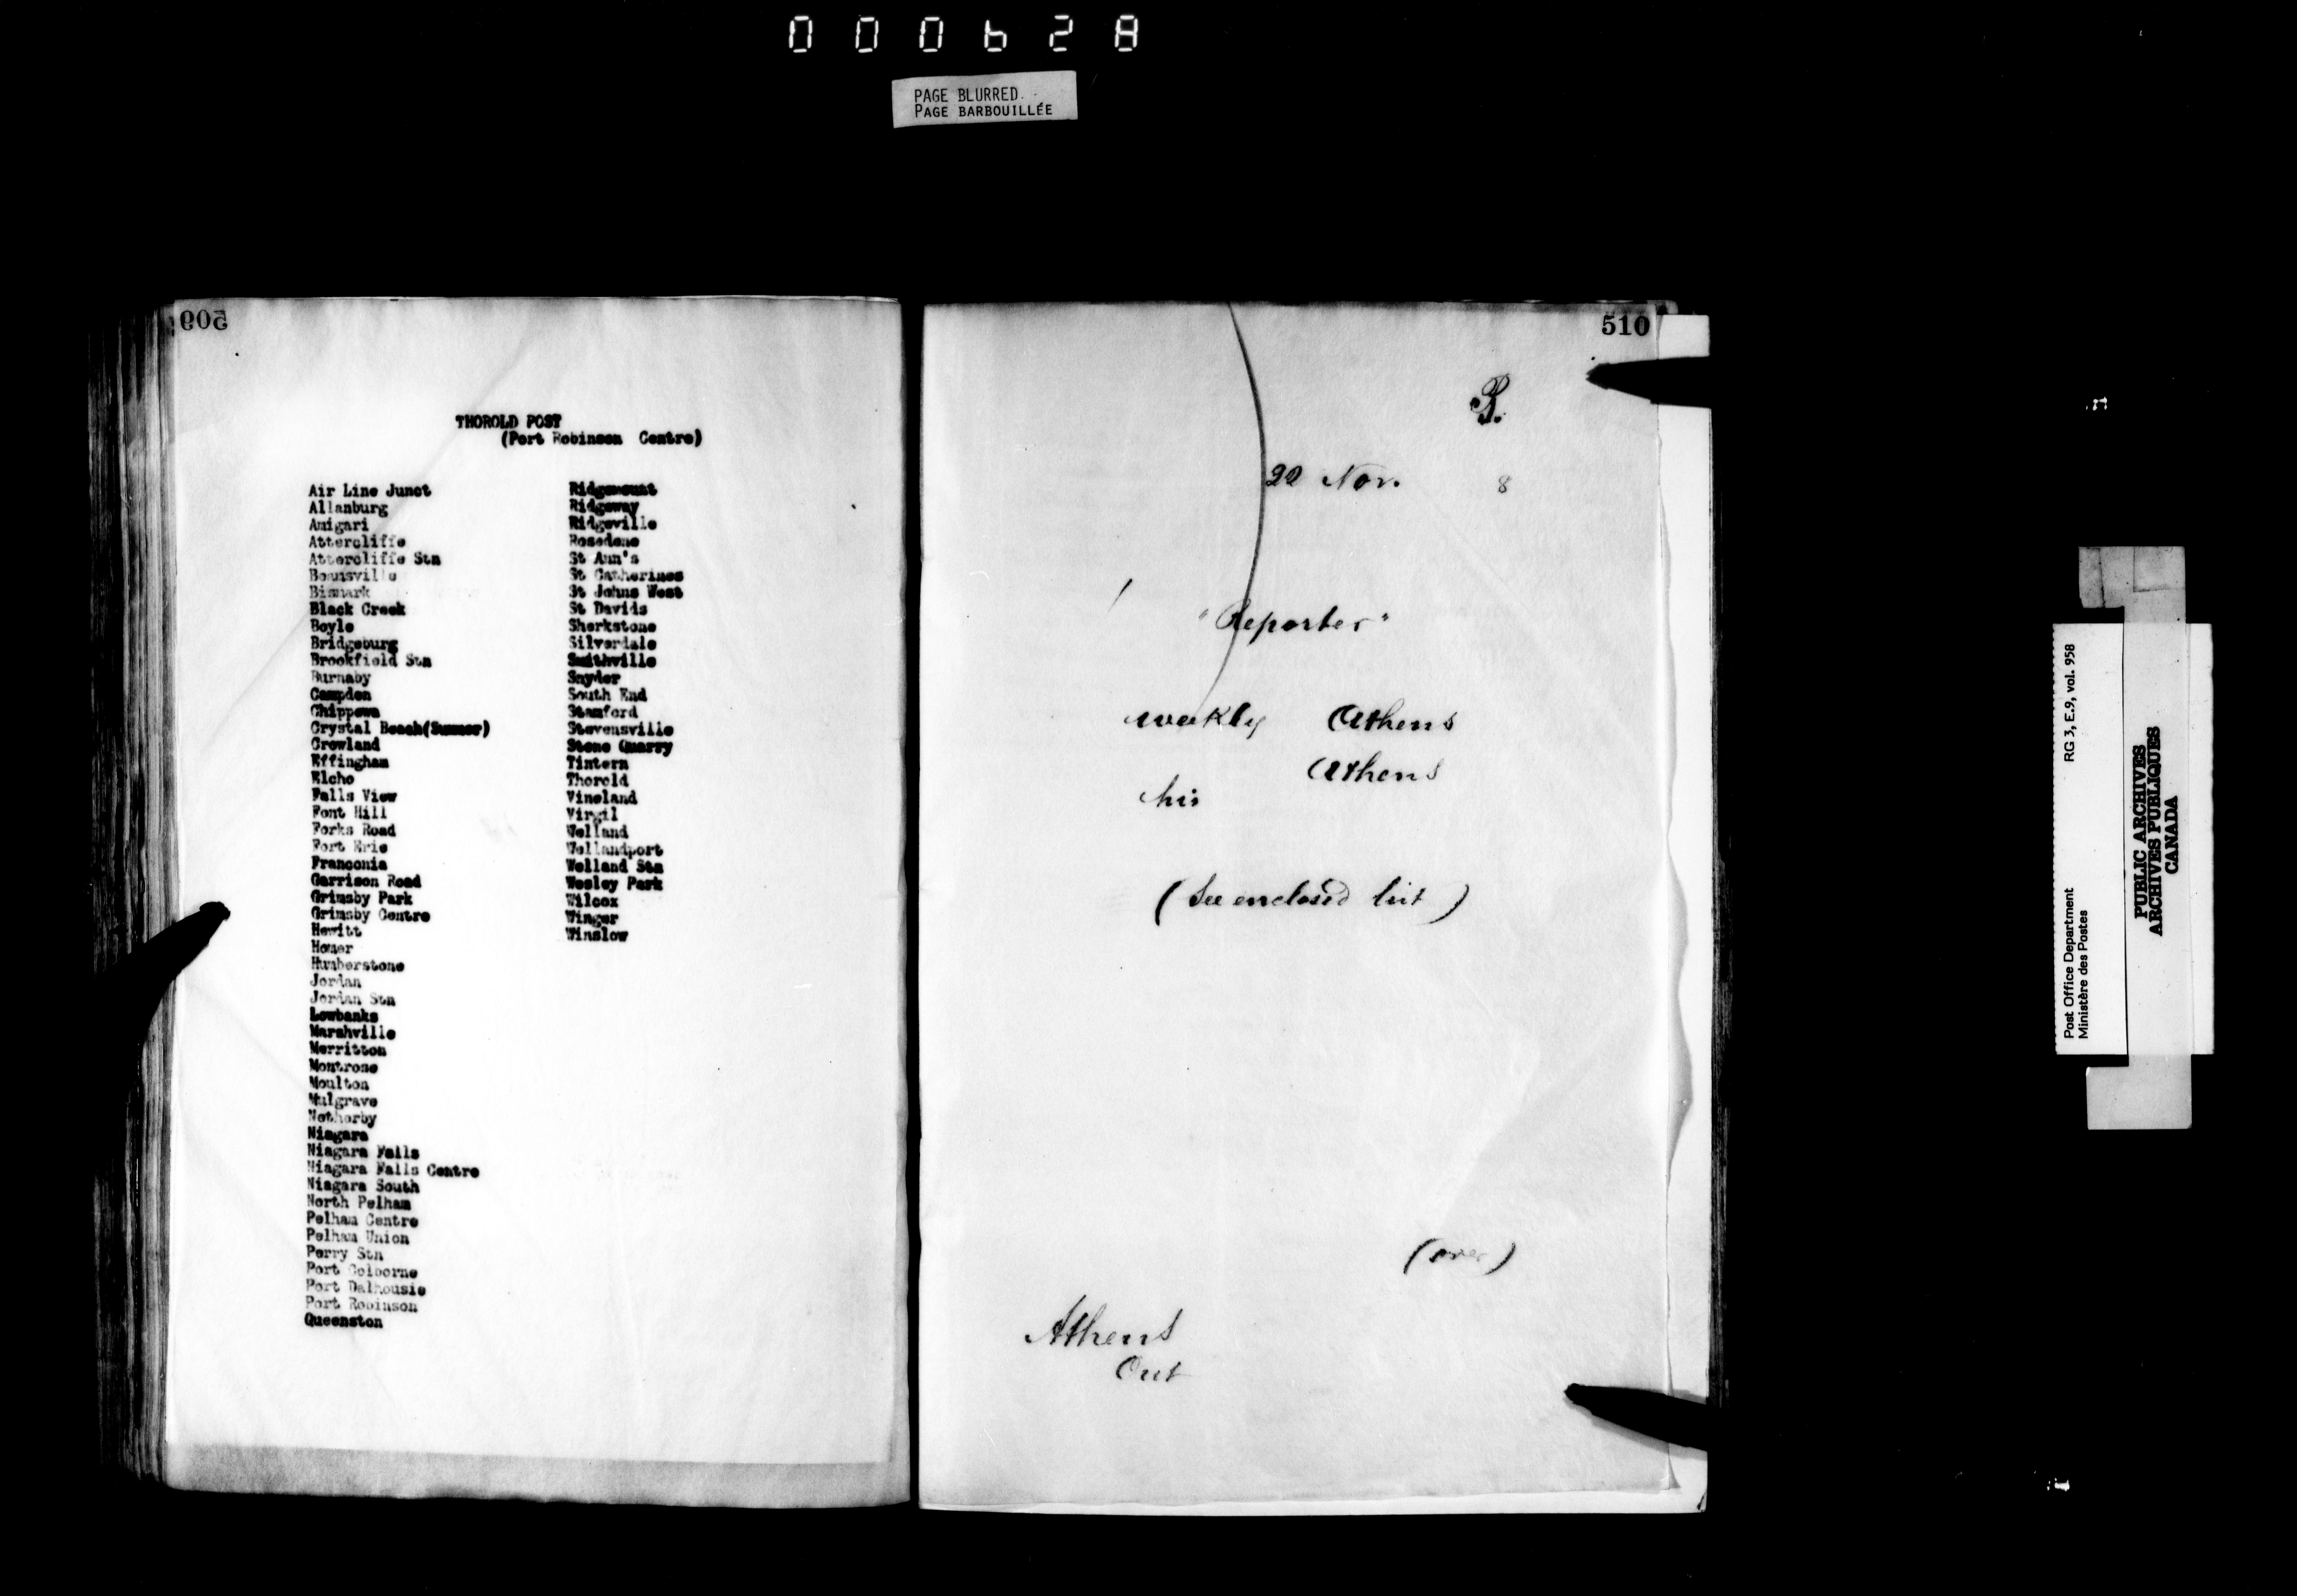 000628
PAGE BLURRED
PAGE BARBOUILLÉE
509
THOROLD POST
(Port Robinson Centre)
Air Line Junct
Allanburg
Amigari
Attercliffe
Attercliffe Stn
Beamsville
Bismark
Black Creek
Boyle
Bridgeburg
Brookfield Stn
Burnaby
Campden
Chippewa
Crystal Beach(Summer)
Crowland
Effingham
Elcho
Falls View
Font Hill
Forks Road
Fort Erie
Franconia
Garrison Road
Grimsby Park
Grimsby Centre
Hewitt
Homer
Humberstone
Jordan
Jordan Stn
Lowbanks
Marshville
Merritton
Montrose
Moulton
Mulgrave
Netherby
Niagara
Niagara Falls
Niagara Falls Centre
Niagara South
North Pelham
Pelham Centre
Pelham Union
Perry Stn
Port Colborne
Port Dalhousie
Port Robinson
Queenston
Ridgemount
Ridgeway
Ridgeville
Rosedene
St Ann's
St Catherines
St Johns West
St Davids
Sherkstone
Silverdale
Smithville
Snyder
South End
Stamford
Stevensville
Stone Quarry
Tintern
Thorold
Vineland
Virgil
Welland
Wellandport
Welland Stn
Wesley Park
Wilcox
Winger
Winslow
510
22 Nov. 8
"Reporter"
weekly Athens
Athens
his
(See enclosed list)
(over)
Athens
Ont
Post Office Department
Ministère des Postes
RG 3, E.9, vol. 958
PUBLIC ARCHIVES
ARCHIVES PUBLIQUES
CANADA